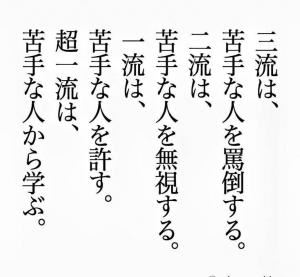 三流は、
苦手な人を罵倒する。
二流は、
苦手な人を無視する。
一流は、
苦手な人を許す。
超一流は、
苦手な人から学ぶ。